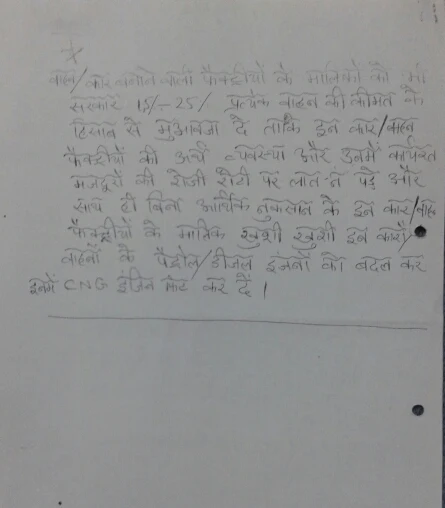 वाहन/कार बनाने वाली फैक्ट्रीयों के मालिकों को भी
सरकार 15/-25/ प्रत्येक वाहन की कीमत के
हिसाब से मुआवजा दे ताकि इन कार/वाहन
फैक्ट्रीयों की अर्थ व्यवस्था और इनमें कार्यरत
मजदूरों की रोजी रोटी पर लात न पड़े और
साथ ही बिना आर्थिक नुकसान के इन कार/वाहन
फैक्ट्रीयों के मालिक खुशी खुशी इन कारों/
वाहनों के पैट्रोल/डीजल इंजनों को बदल कर
इनमें CNG इंजिन फिट कर दें।